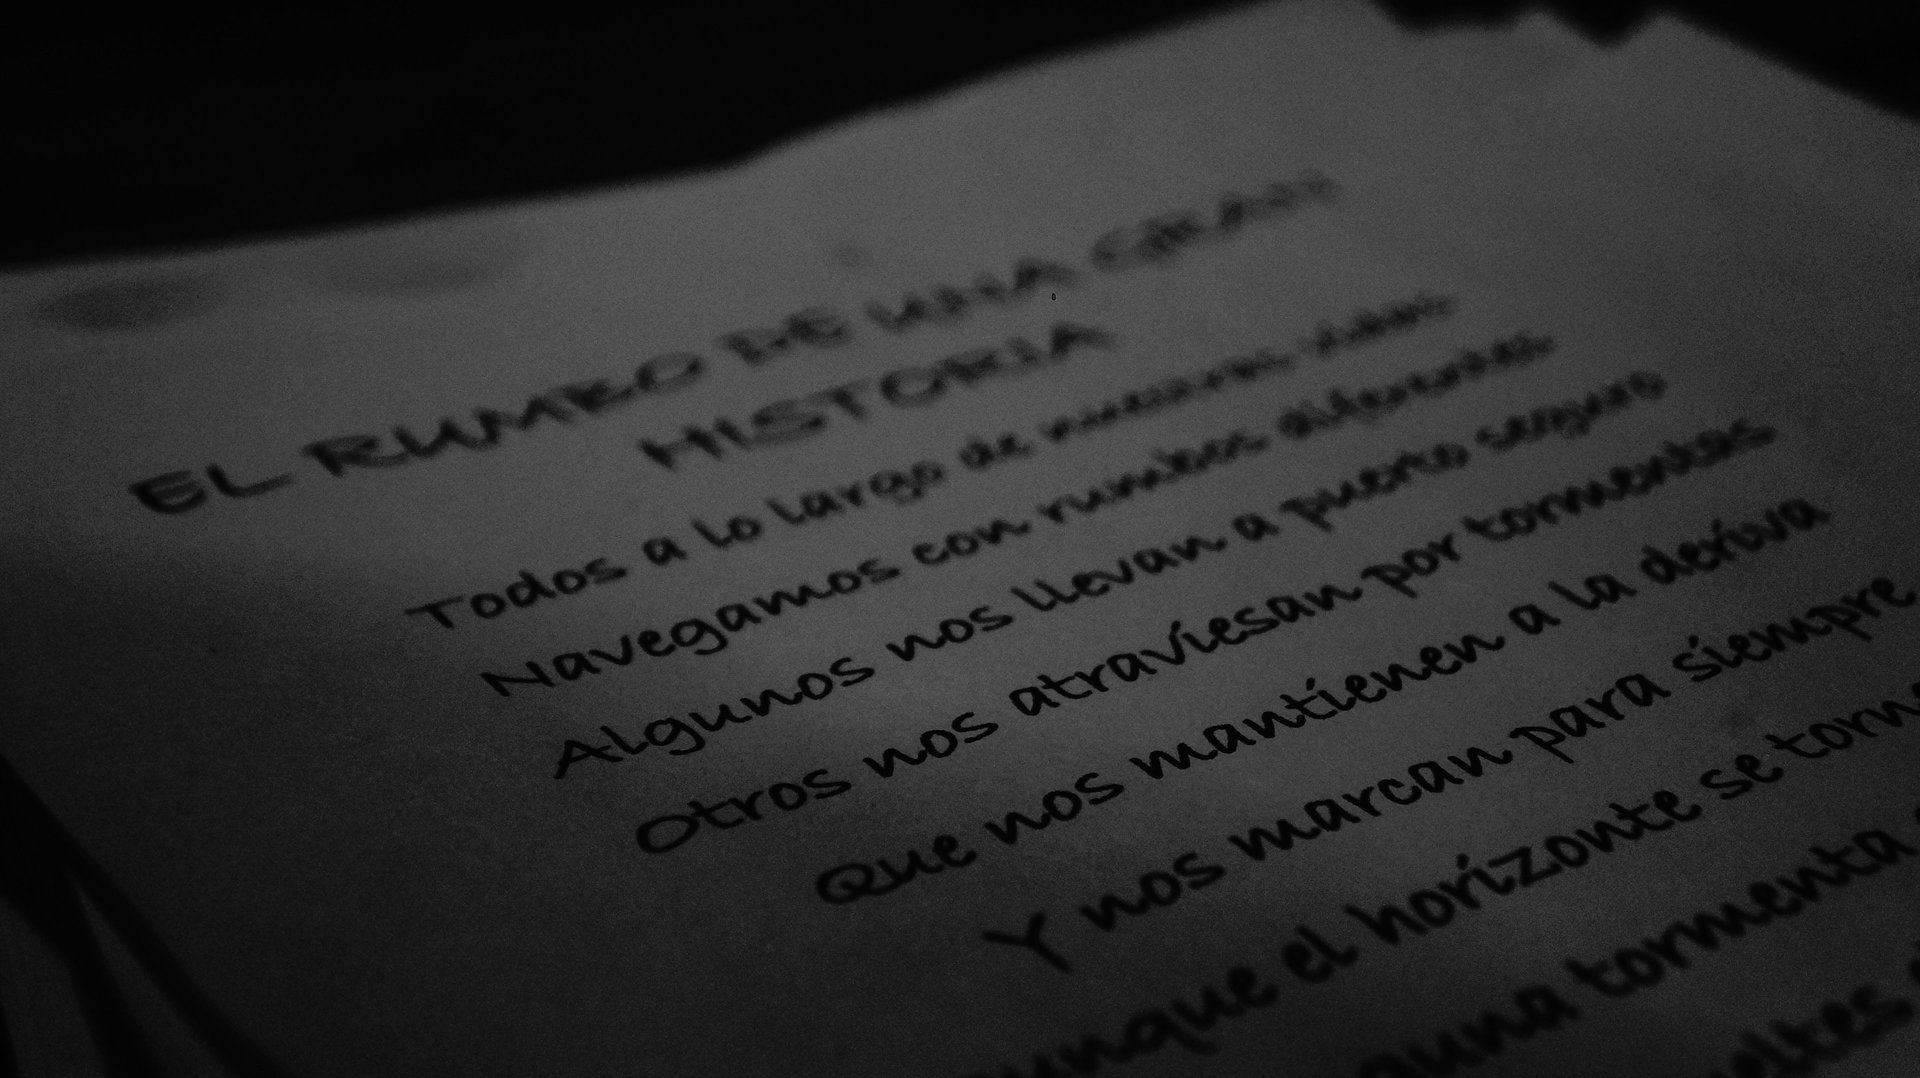 EL RUMBO DE UNA GRAN
HISTORIA
Todos a lo largo de nuestras vidas
Navegamos con rumbos diferentes
Algunos nos llevan a puerto seguro
Otros nos atraviesan por tormentas
Que nos mantienen a la deriva
Y nos marcan para siempre
el horizonte se
tormenta